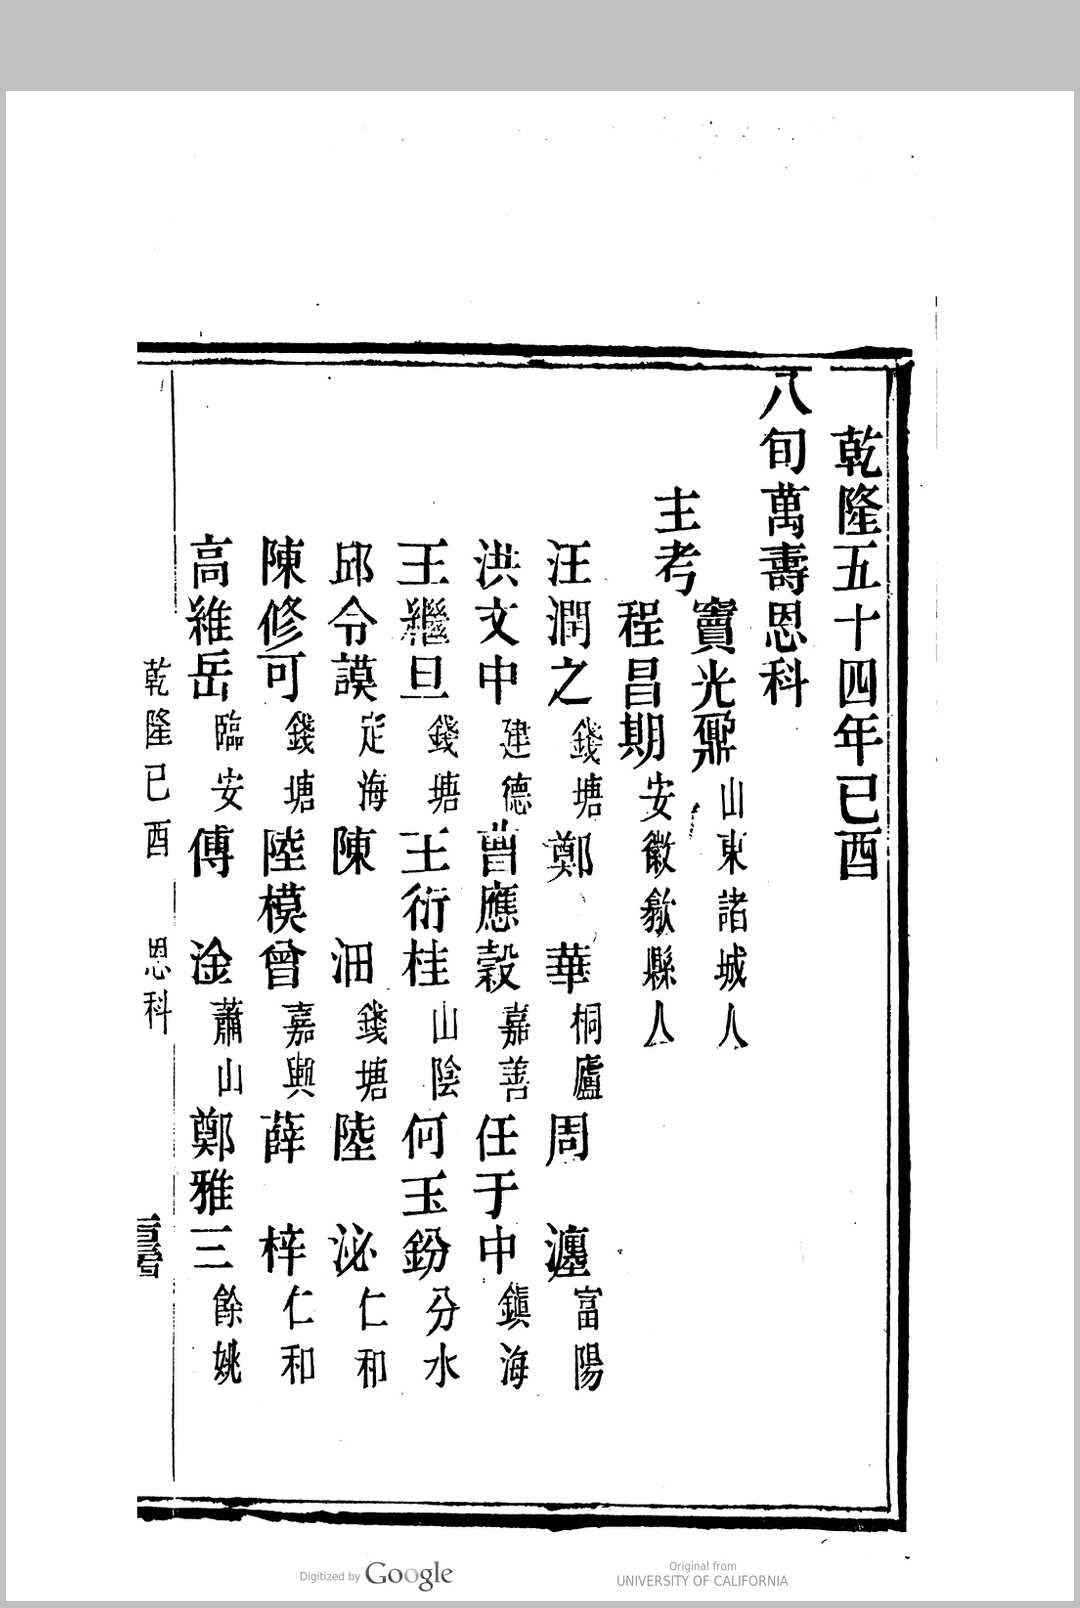 乾隆五十四年已酉
八旬萬壽恩科
主考
竇光鼐山東諸城人
程昌期安徽歙縣人
汪潤之錢塘 鄭華桐廬 周瀍富陽
洪文中建德 曹應穀嘉善 任于中鎮海
王繼旦錢塘 王衍桂山陰 何玉鈖分水
邱令謨定海 陳沺錢塘 陸泌仁和
陳修可錢塘 陸模曾嘉興 薛梓仁和
高維岳臨安 傅淦蕭山 鄭雅三餘姚
乾隆已酉 恩科
Digitized by Google
Original from
UNIVERSITY OF CALIFORNIA